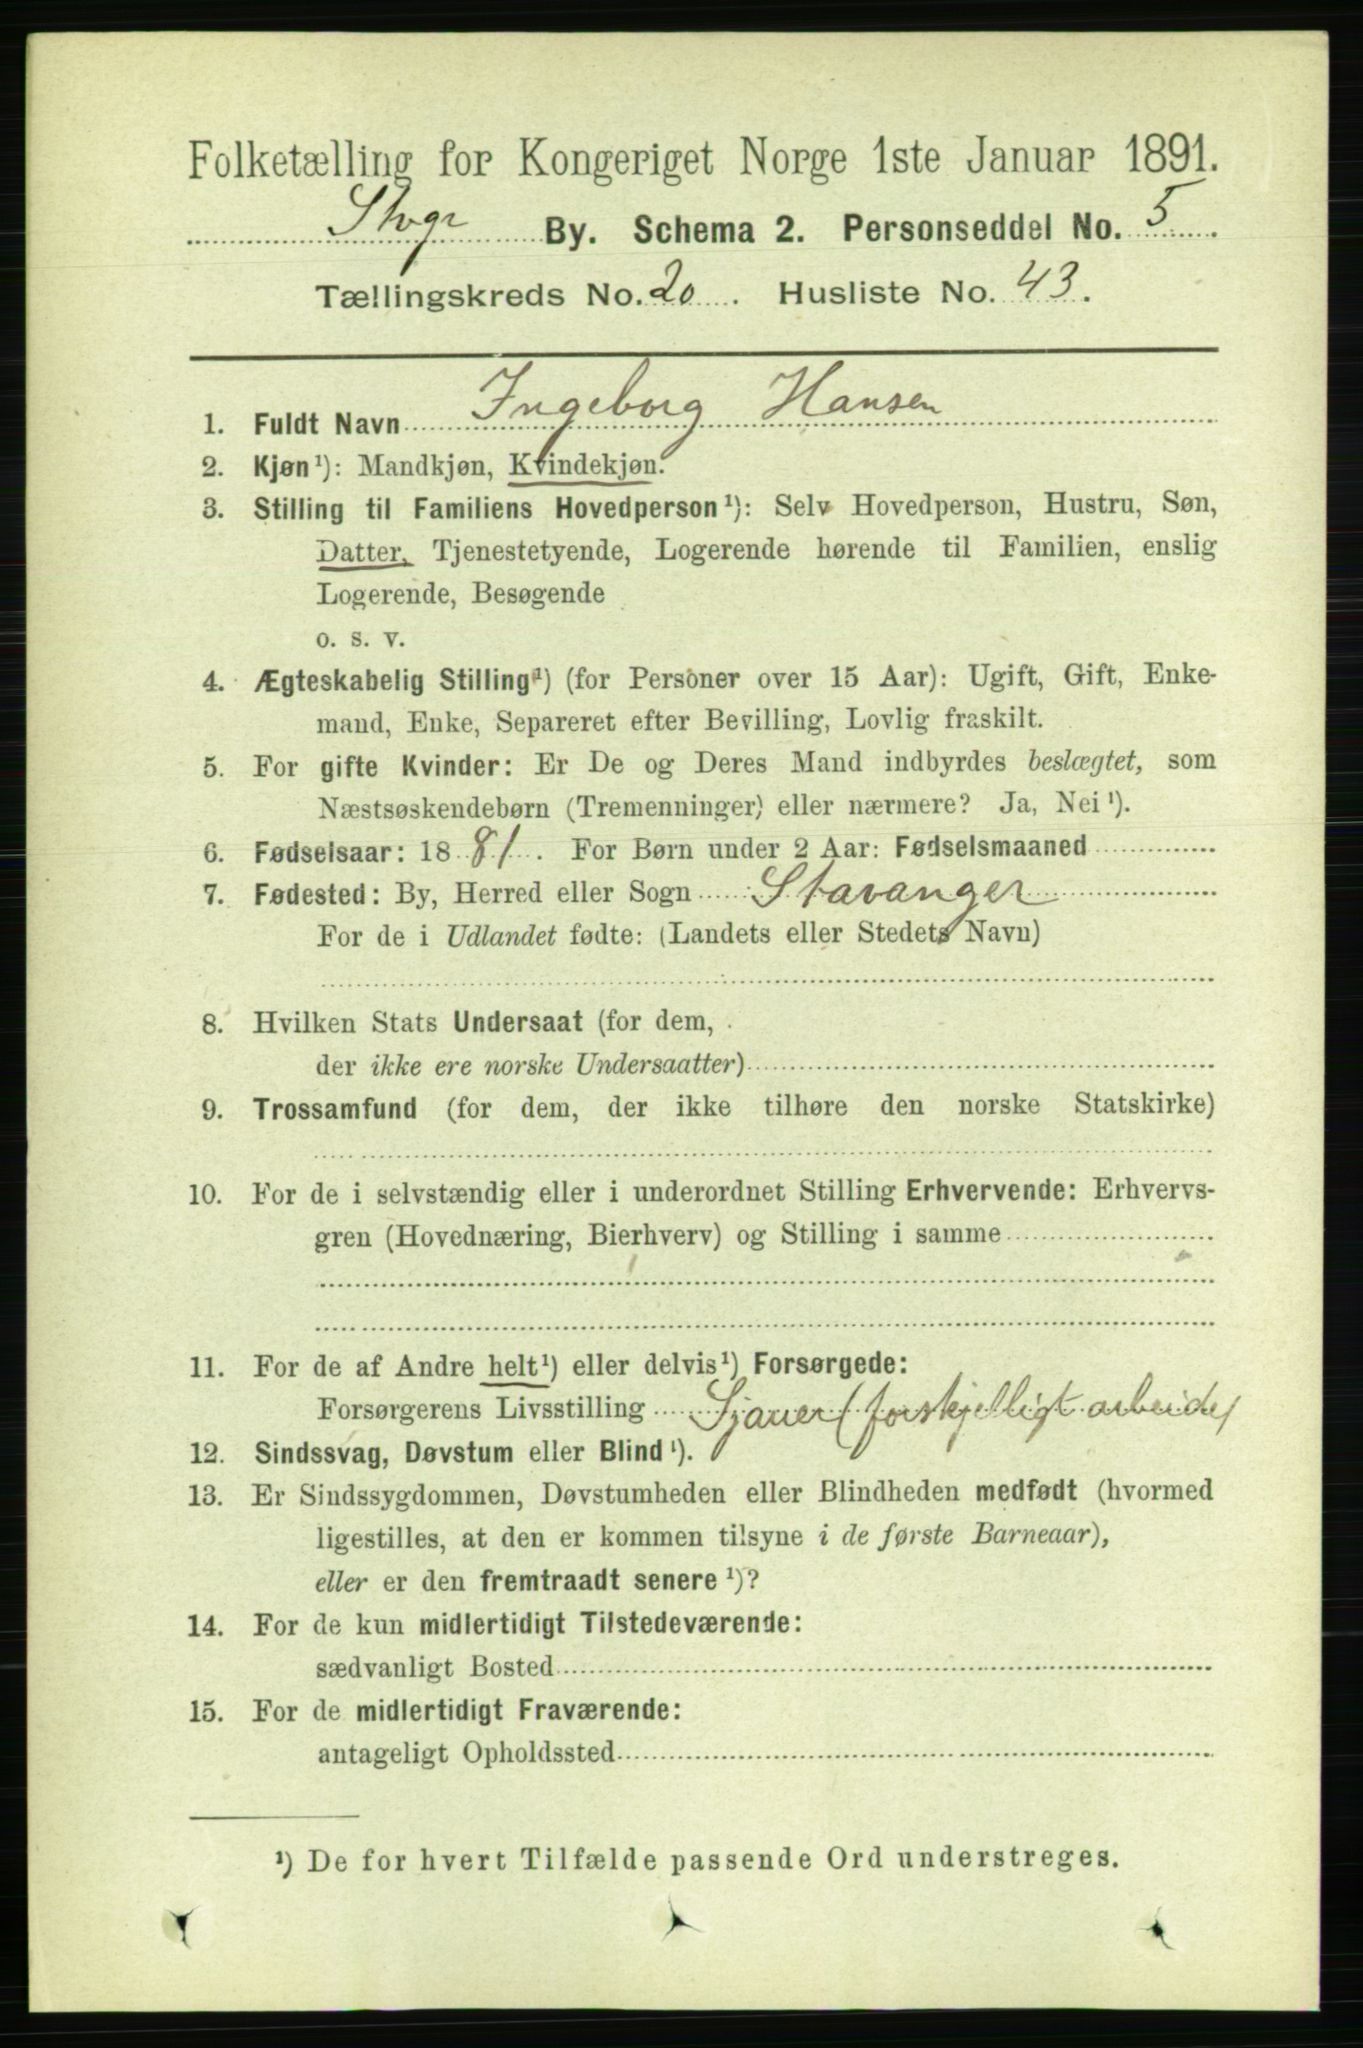 Folketælling for Kongeriget Norge 1ste Januar 1891.
Stvgr By. Schema 2. Personseddel No. 5.
Tællingskreds No. 20. Husliste No. 43.
1. Fuldt Navn Ingeborg Hansen
2. Kjøn¹): Mandkjøn, Kvindekjøn.
3. Stilling til Familiens Hovedperson¹): Selv Hovedperson, Hustru, Søn,
Datter, Tjenestetyende, Logerende hørende til Familien, enslig
Logerende, Besøgende
o. s. v.
4. Ægteskabelig Stilling¹) (for Personer over 15 Aar): Ugift, Gift, Enke-
mand, Enke, Separeret efter Bevilling, Lovlig fraskilt.
5. For gifte Kvinder: Er De og Deres Mand indbyrdes beslægtet, som
Næstsøskendebørn (Tremenninger) eller nærmere? Ja, Nei¹).
6. Fødselsaar: 1881. For Børn under 2 Aar: Fødselsmaaned
7. Fødested: By, Herred eller Sogn Stavanger
For de i Udlandet fødte: (Landets eller Stedets Navn)
8. Hvilken Stats Undersaat (for dem,
der ikke ere norske Undersaatter)
9. Trossamfund (for dem, der ikke tilhøre den norske Statskirke)
10. For de i selvstændig eller i underordnet Stilling Erhvervende: Erhvervs-
gren (Hovednæring, Bierhverv) og Stilling i samme
11. For de af Andre helt¹) eller delvis¹) Forsørgede:
Forsørgerens Livsstilling Sjauer (forskjelligt arbeide)
12. Sindssvag, Døvstum eller Blind¹).
13. Er Sindssygdommen, Døvstumheden eller Blindheden medfødt (hvormed
ligestilles, at den er kommen tilsyne i de første Barneaar),
eller er den fremtraadt senere¹)?
14. For de kun midlertidigt Tilstedeværende:
sædvanligt Bosted
15. For de midlertidigt Fraværende:
antageligt Opholdssted
¹) De for hvert Tilfælde passende Ord understreges.